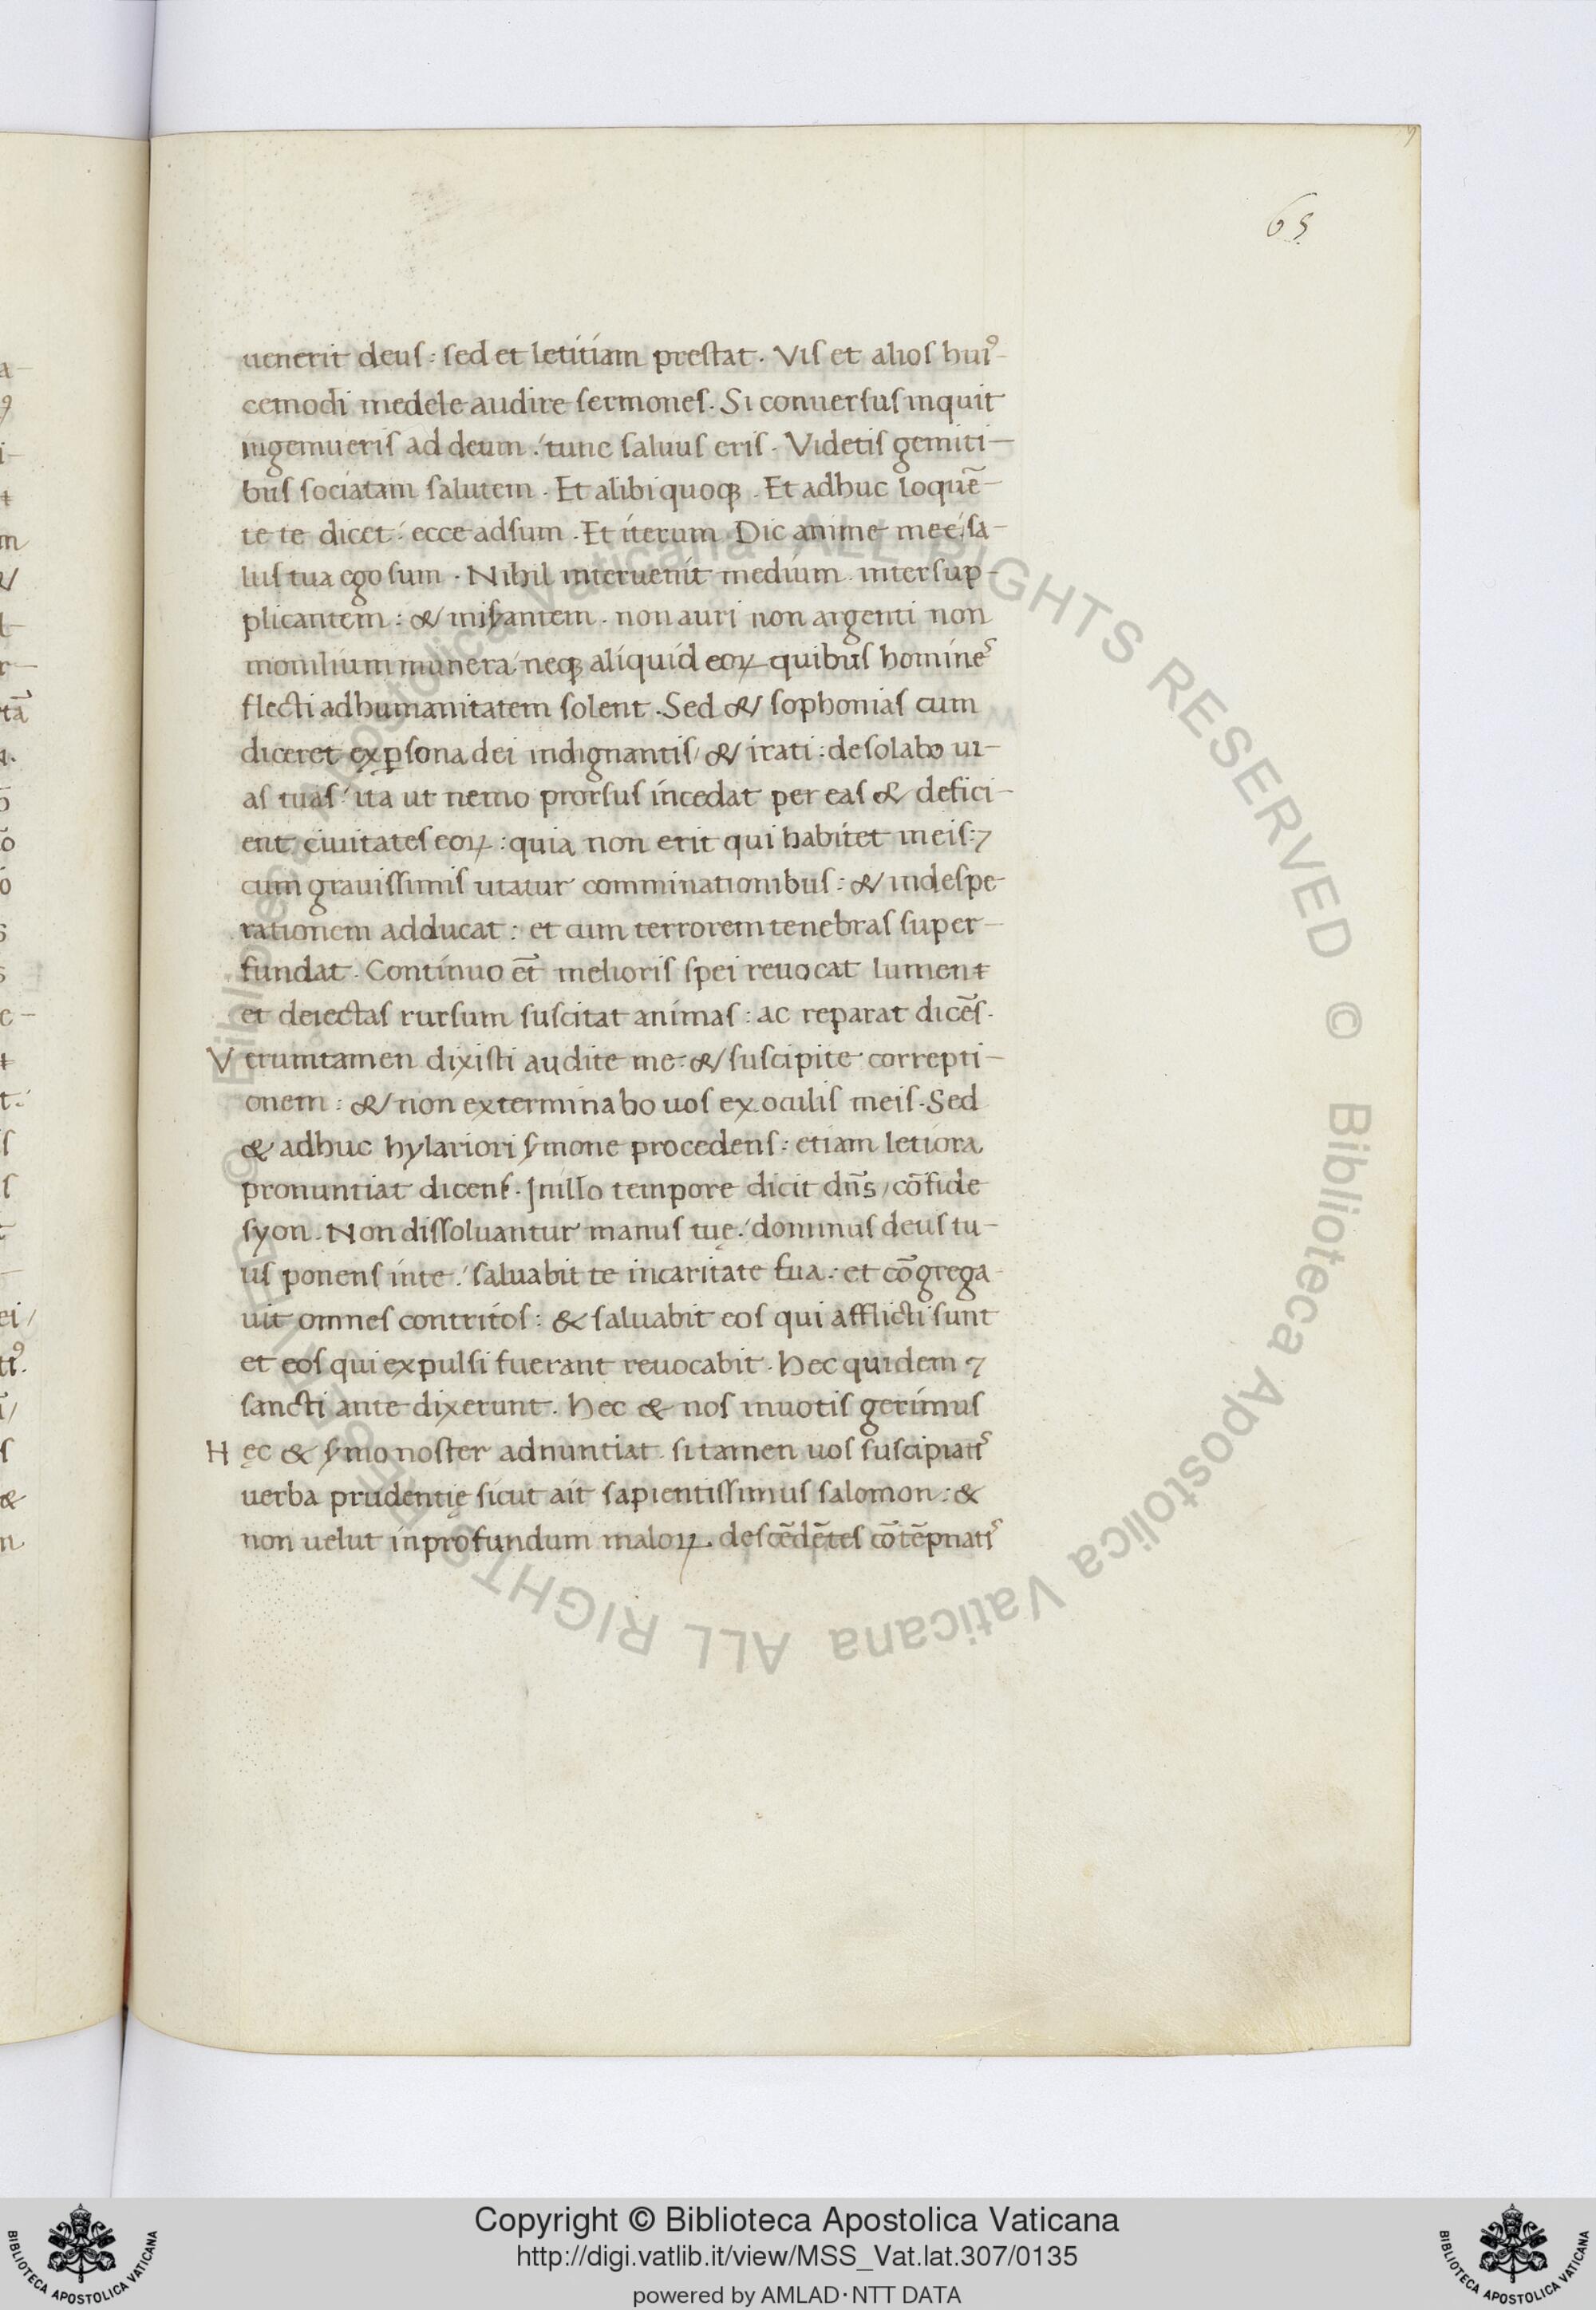 65
uenerit deus: sed et letitiam prestat. Vis et alios huiꝰ-
cemodi medele audire sermones. Si conuersus inquit
ingemueris ad deum: tunc saluus eris. Videtis gemiti-
bus sociatam salutem. Et alibi quoqꝫ. Et adhuc loquē-
te te dicet: ecce adsum. Et iterum Dic anime mee: sa-
lus tua ego sum. Nihil interuenit medium inter sup-
plicantem: & miserantem. non auri non argenti non
monilium munera neqꝫ aliquid eoꝝ quibus homines
flecti ad humanitatem solent. Sed & sophonias cum
diceret ex ꝑsona dei indignantis/ & irati: desolabo ui-
as tuas: ita ut nemo prorsus incedat per eas & defici-
ent ciuitates eoꝝ: quia non erit qui habitet in eis:⁊
cum grauissimis utatur comminationibus: & in despe-
rationem adducat: et cum terrorem tenebras super-
fundat. Continuo et̄ melioris spei reuocat lumen
et deiectas rursum suscitat animas: ac reparat dicēs.
Verumtamen dixisti audite me: & suscipite correpti-
onem: & non exterminabo uos ex oculis meis. Sed
& adhuc hylariori sermone procedens: etiam letiora
pronuntiat dicens. Jn illo tempore dicit dn̄s/ cōfide
syon. Non dissoluantur manus tuę: dominus deus tu-
us ponens in te: saluabit te in caritate sua: et cōgrega
uit omnes contritos: & saluabit eos qui afflicti sunt
et eos qui expulsi fuerant reuocabit. Hec quidem ⁊
sancti ante dixerunt. Hec & nos in uotis gerimus
Hęc & sermo noster adnuntiat si tamen uos suscipiatis
uerba prudentię sicut ait sapientissimus salomon: &
non uelut in profundum maloꝝ. descēdētes cōtēpnatis
© Biblioteca Apostolica Vaticana ALL RIGHTS RESERVED © Biblioteca Apostolica Vaticana ALL RIGHTS RESERVED
Copyright © Biblioteca Apostolica Vaticana
http://digi.vatlib.it/view/MSS_Vat.lat.307/0135
powered by AMLAD·NTT DATA
BIBLIOTECA APOSTOLICA VATICANA
BIBLIOTECA APOSTOLICA VATICANA